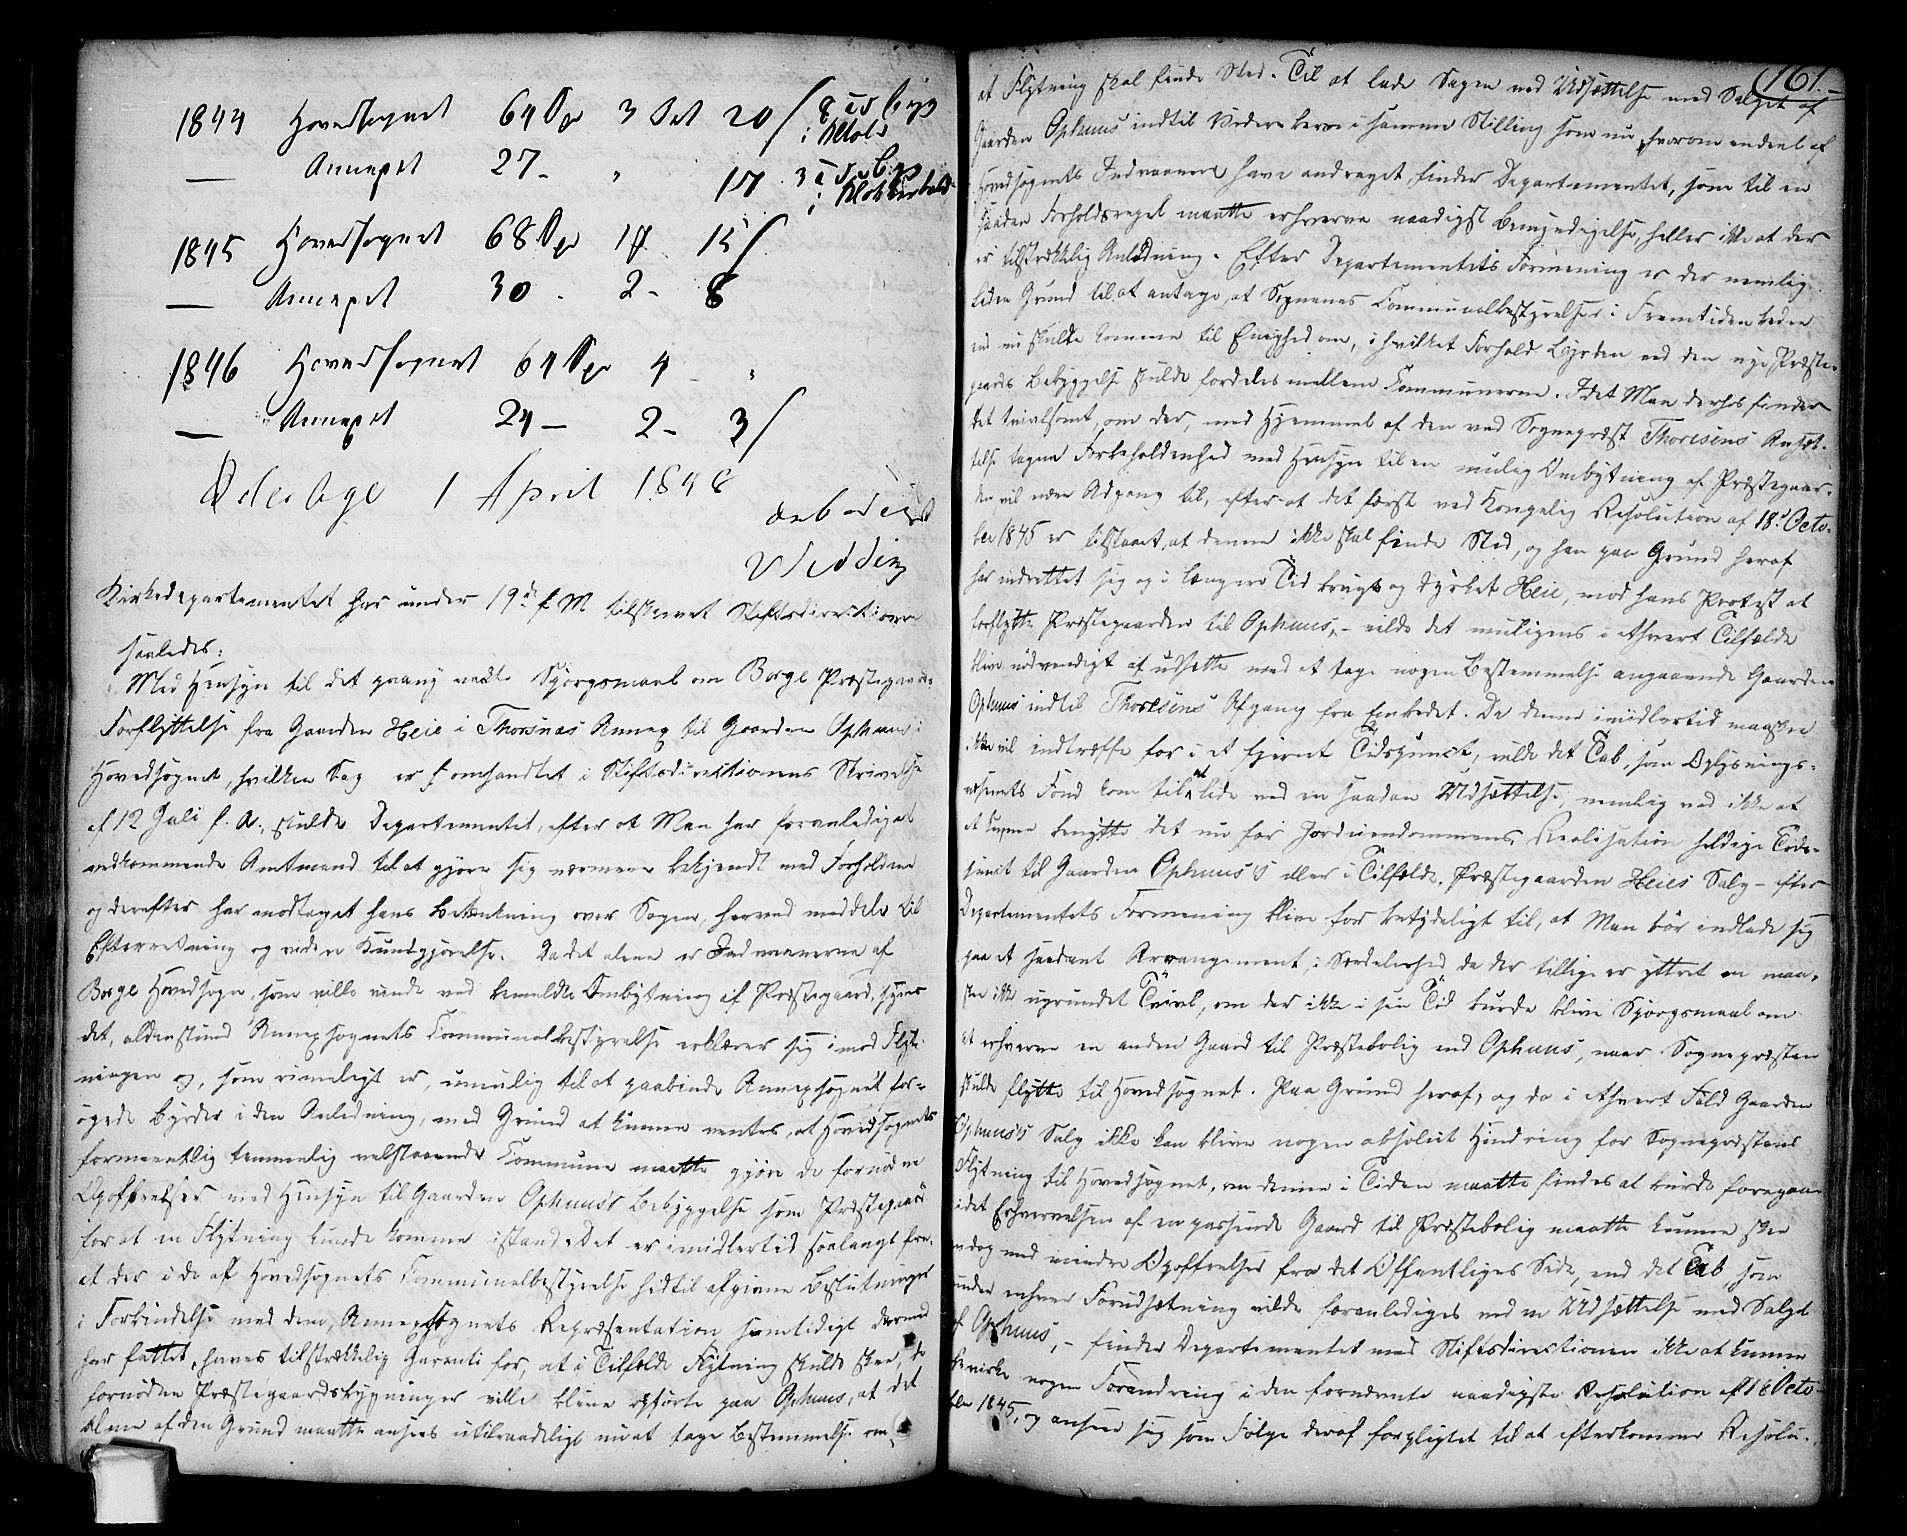 1844 Hovedsognet 64 Spd 3 Ort 20 /
— Annexet 27 - " 17
1845 Hovedsognet 68 Spd 1 15 /
— Annexet 30 - 2 - 8
1846 Hovedsognet 64 Spd 4 - "
— Annexet 24 — 2 - 3 /
1 April 1848
ærbødigst
Wedding
Kirkedepartementet har under 19de f. M. tilskrevet Stiftsdirectionen
saaledes:
"Med Hensyn til det paany vakte Spörgsmaal om Borge Præstegaards
Forflyttelse fra Gaarden Heie i Thorsnæs Annex til Gaarden Ophuus i
Hovedsognet, hvilken Sag er omhandlet i Stiftsdirektionens Skrivelse
af 12 Juli f. A., skulde Departementet, efter at Man har foranlediget
vedkommende Amtmand til at gjöre sig nærmere bekjendt med Forholdene
og derefter har modtaget hans Betænkning over Sagen, herved meddele til
Efterretning og videre Kundgjörelse: Da det alene er Indvaanerne af
Borge Hovedsogn, som ville vinde ved bemeldte Ombytning af Præstegaard, synes
det, aldenstund Annexsognets Communalbestyrelse erklærer sig imod Flyt-
ningen og, som rimeligt er, umulig til at paabinde Annexsognet for-
ögede Byrder i den Anledning, med Grund at kunne ventes, at Hovedsognets
formeentlig temmelig velstaaende Commune maatte gjöre de fornödne
Opoffrelser med Hensyn til Gaarden Ophuus's Bebyggelse som Præstegaard
for at en Flytning kunde komme istand. Det er imidlertid saalangt fra,
at der i de af Hovedsognets Communalbestyrelse hidtil afgivne Beslutninger
i Forbindelse med dem, Annexsognets Repræsentation samtidigt dermed
har fattet, haves tilstrækkelig Garanti for, at i Tilfælde Flytning skulde skee, de
fornödne Præstegaardsbygninger ville blive opförte paa Ophuus, at det
alene af den Grund maatte ansees utilraadeligt nu at tage Bestemmelse om,
161.
at Flytning skal finde Sted. Til at lade Sagen ved Udsættelse med Salget af
Gaarden Ophuus indtil Videre bero i samme Stilling som nu, hvorom endeel af
Hovedsognets Indvaanere have andraget, finder Departementet, som til en
saadan Forholdsregel maatte erhverve naadigst Bemyndigelse, heller ikke at der
er tilstrækkelig Anledning. Efter Departementets Formening er der nemlig
liden Grund til at antage, at Sognenes Communalbestyrelser i Fremtiden bedre
end nu skulde komme til Enighed om, i hvilket Forhold Byrden ved den nye Præste-
gaards Bebyggelse skulde fordeles mellem Communerne. Idet Man derhos finder
det tvivlsomt, om der, med Hjemmel af den ved Sognepræst Thoresens Ansæt-
telse tagne Forbeholdenhed med Hensyn til en mulig Ombytning af Præstegaar-
den vil være Adgang til, efter at det först ved Kongelig Resolution af 18de Octo-
ber 1845 er tilstaaet, at denne ikke skal finde Sted, og han paa Grund heraf
har indrettet sig og i længere Tid brugt og dyrket Heie, mod hans Protest at
forflytte Præstegaarden til Ophuus, - vilde det muligens i ethvert Tilfælde
blive nödvendigt at udsætte med at tage nogen Bestemmelse angaaende Gaarden
Ophuus indtil Thoresens Afgang fra Embedet. Da denne imidlertid maaskee
ikke vil indtræffe för i et fjernt Tidspunct, vilde det Tab, som Oplysnings-
væsenets Fond kom til at lide ved en saadan Udsættelse, nemlig ved ikke at
at kunne benytte det nu for Jordeiendommens Realisation heldige Tids-
punct til Gaarden Ophuus's eller i Tilfælde Præstegaarden Heies Salg - efter
Departementets Formening blive for betydeligt til, at Man bör indlade sig
paa et saadant Arrangement, i Særdeleshed da der tillige er yttret en maa-
skee ikke ugrundet Tvivl, om der ikke i sin Tid burde blive Spörgsmaal om
at erhverve en anden Gaard til Præstebolig end Ophuus, naar Sognepræsten
skulde flytte til Hovedsognet. Paa Grund heraf, og da i ethvert Fald Gaarden
Ophuus's Salg ikke kan blive nogen absolut Hindring for Sognepræstens
Flytning til Hovedsognet, om denne i Tiden maatte findes at burde foregaae
idet Erhvervelsen af en passende Gaard til Præstebolig maatte kunne skee
endog med mindre Opoffrelser fra det Offentliges Side, end det Tab, som
under enhver Forudsætning vilde foranlediges ved en Udsættelse med Salget
af Ophuus, - finder Departementet med Stiftsdirectionen ikke at kunne
bevirke nogen Forandring i den forværende naadigste Resolution af 18 Octo-
ber 1845, og anseer sig som Fölge deraf forpligtet til at efterkomme Resolu-